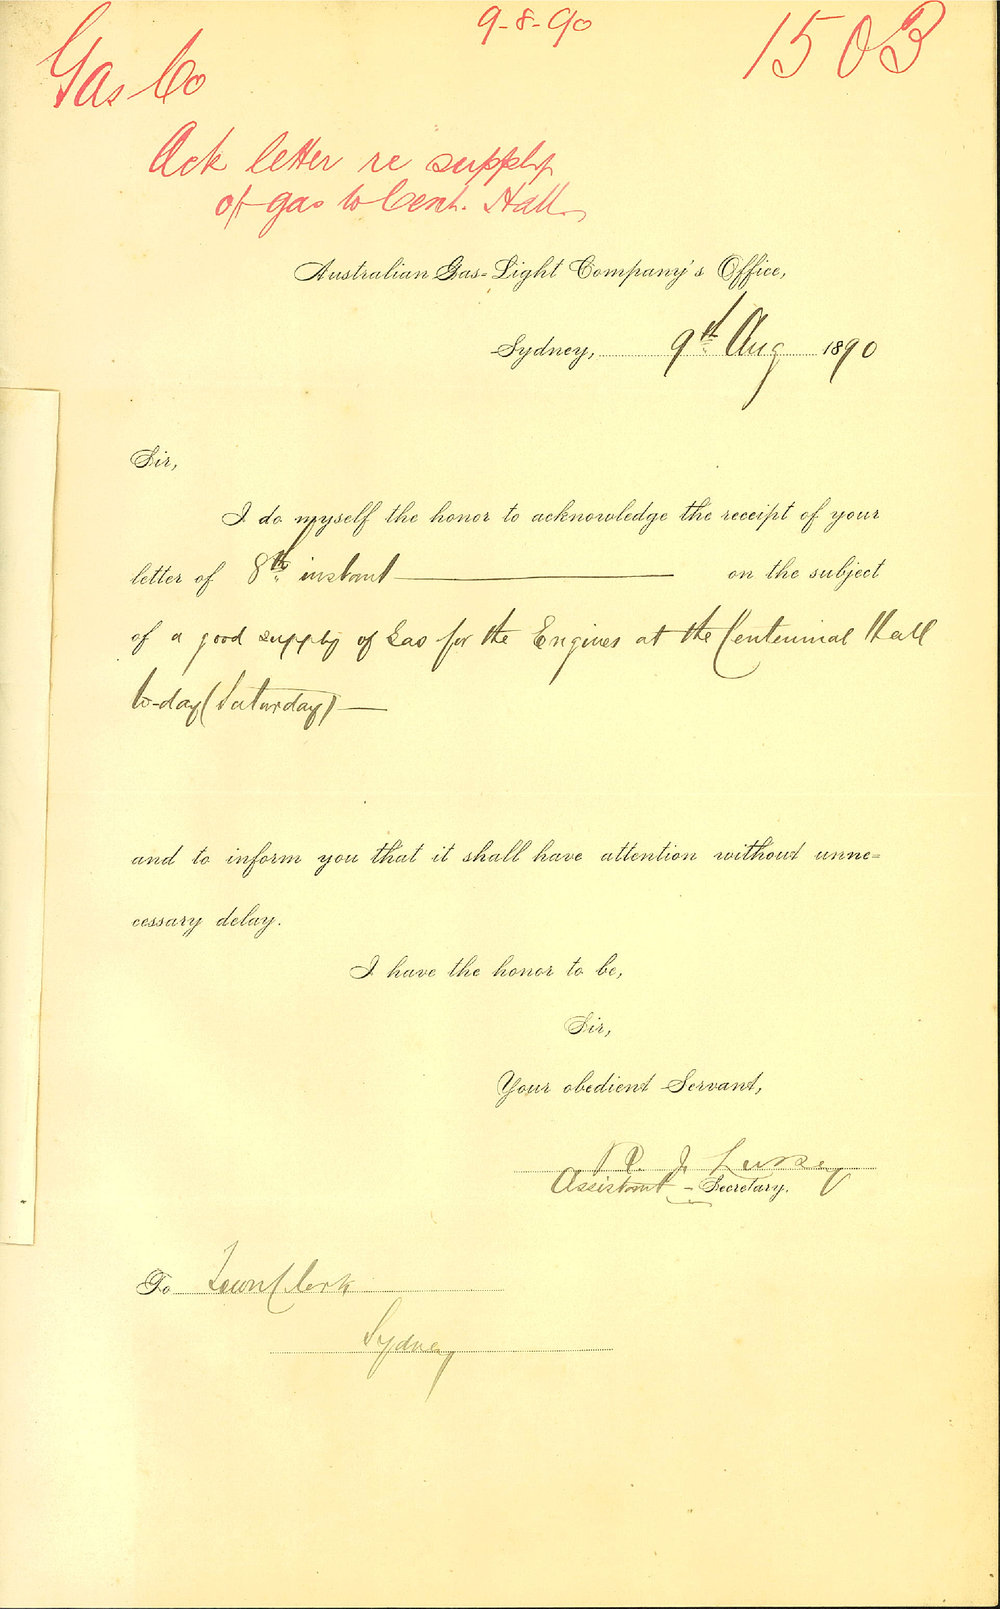 9-8-90
1503
Gas Co
Ack letter re supply
of gas to Cent. Hall.
Australian Gas-Light Company's Office,
Sydney, 9th Aug 1890
Sir,
I do myself the honor to acknowledge the receipt of your
letter of 8th instant on the subject
of a good supply of Gas for the Engines at the Centennial Hall
to-day (Saturday) —
and to inform you that it shall have attention without unne=
cessary delay.
I have the honor to be,
Sir,
Your obedient Servant,
R. J.
Assistant - Secretary.
To Town Clerk
Sydney